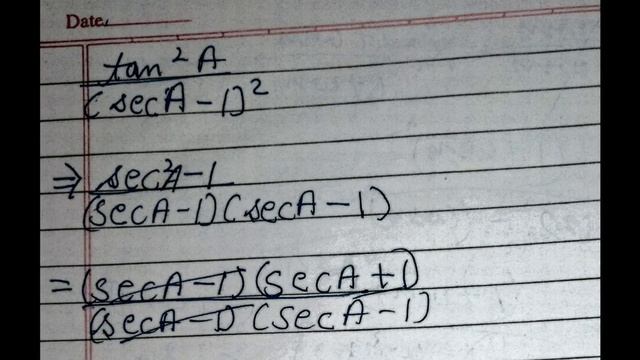 Date.
tan²A
(secA-1)²
⇒ sec²A-1
(secA-1)(secA-1)
= (secA-1)(secA+1)
(secA-1)(secA-1)